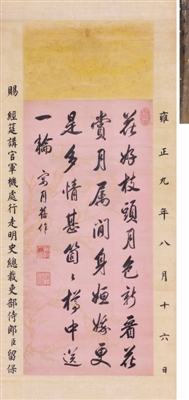 雍正九年八月十六日
花好枝頭月色新看花
賞月属閒身姮娥更
是多情甚箇〻樽中送
一輪
寫月舊作
賜 經筵講官軍機處行走明史總裁吏部侍郎臣留保